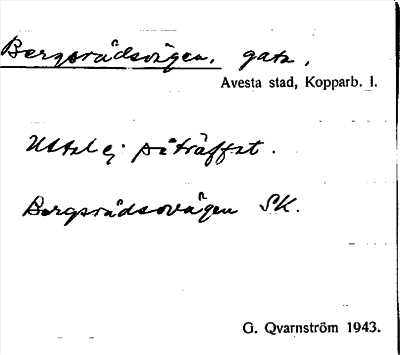 Bergsrådsvägen, gata,
Avesta stad, Kopparb. l.
Uttal ej påträffat.
Bergsrådsvägen SK.
G. Qvarnström 1943.